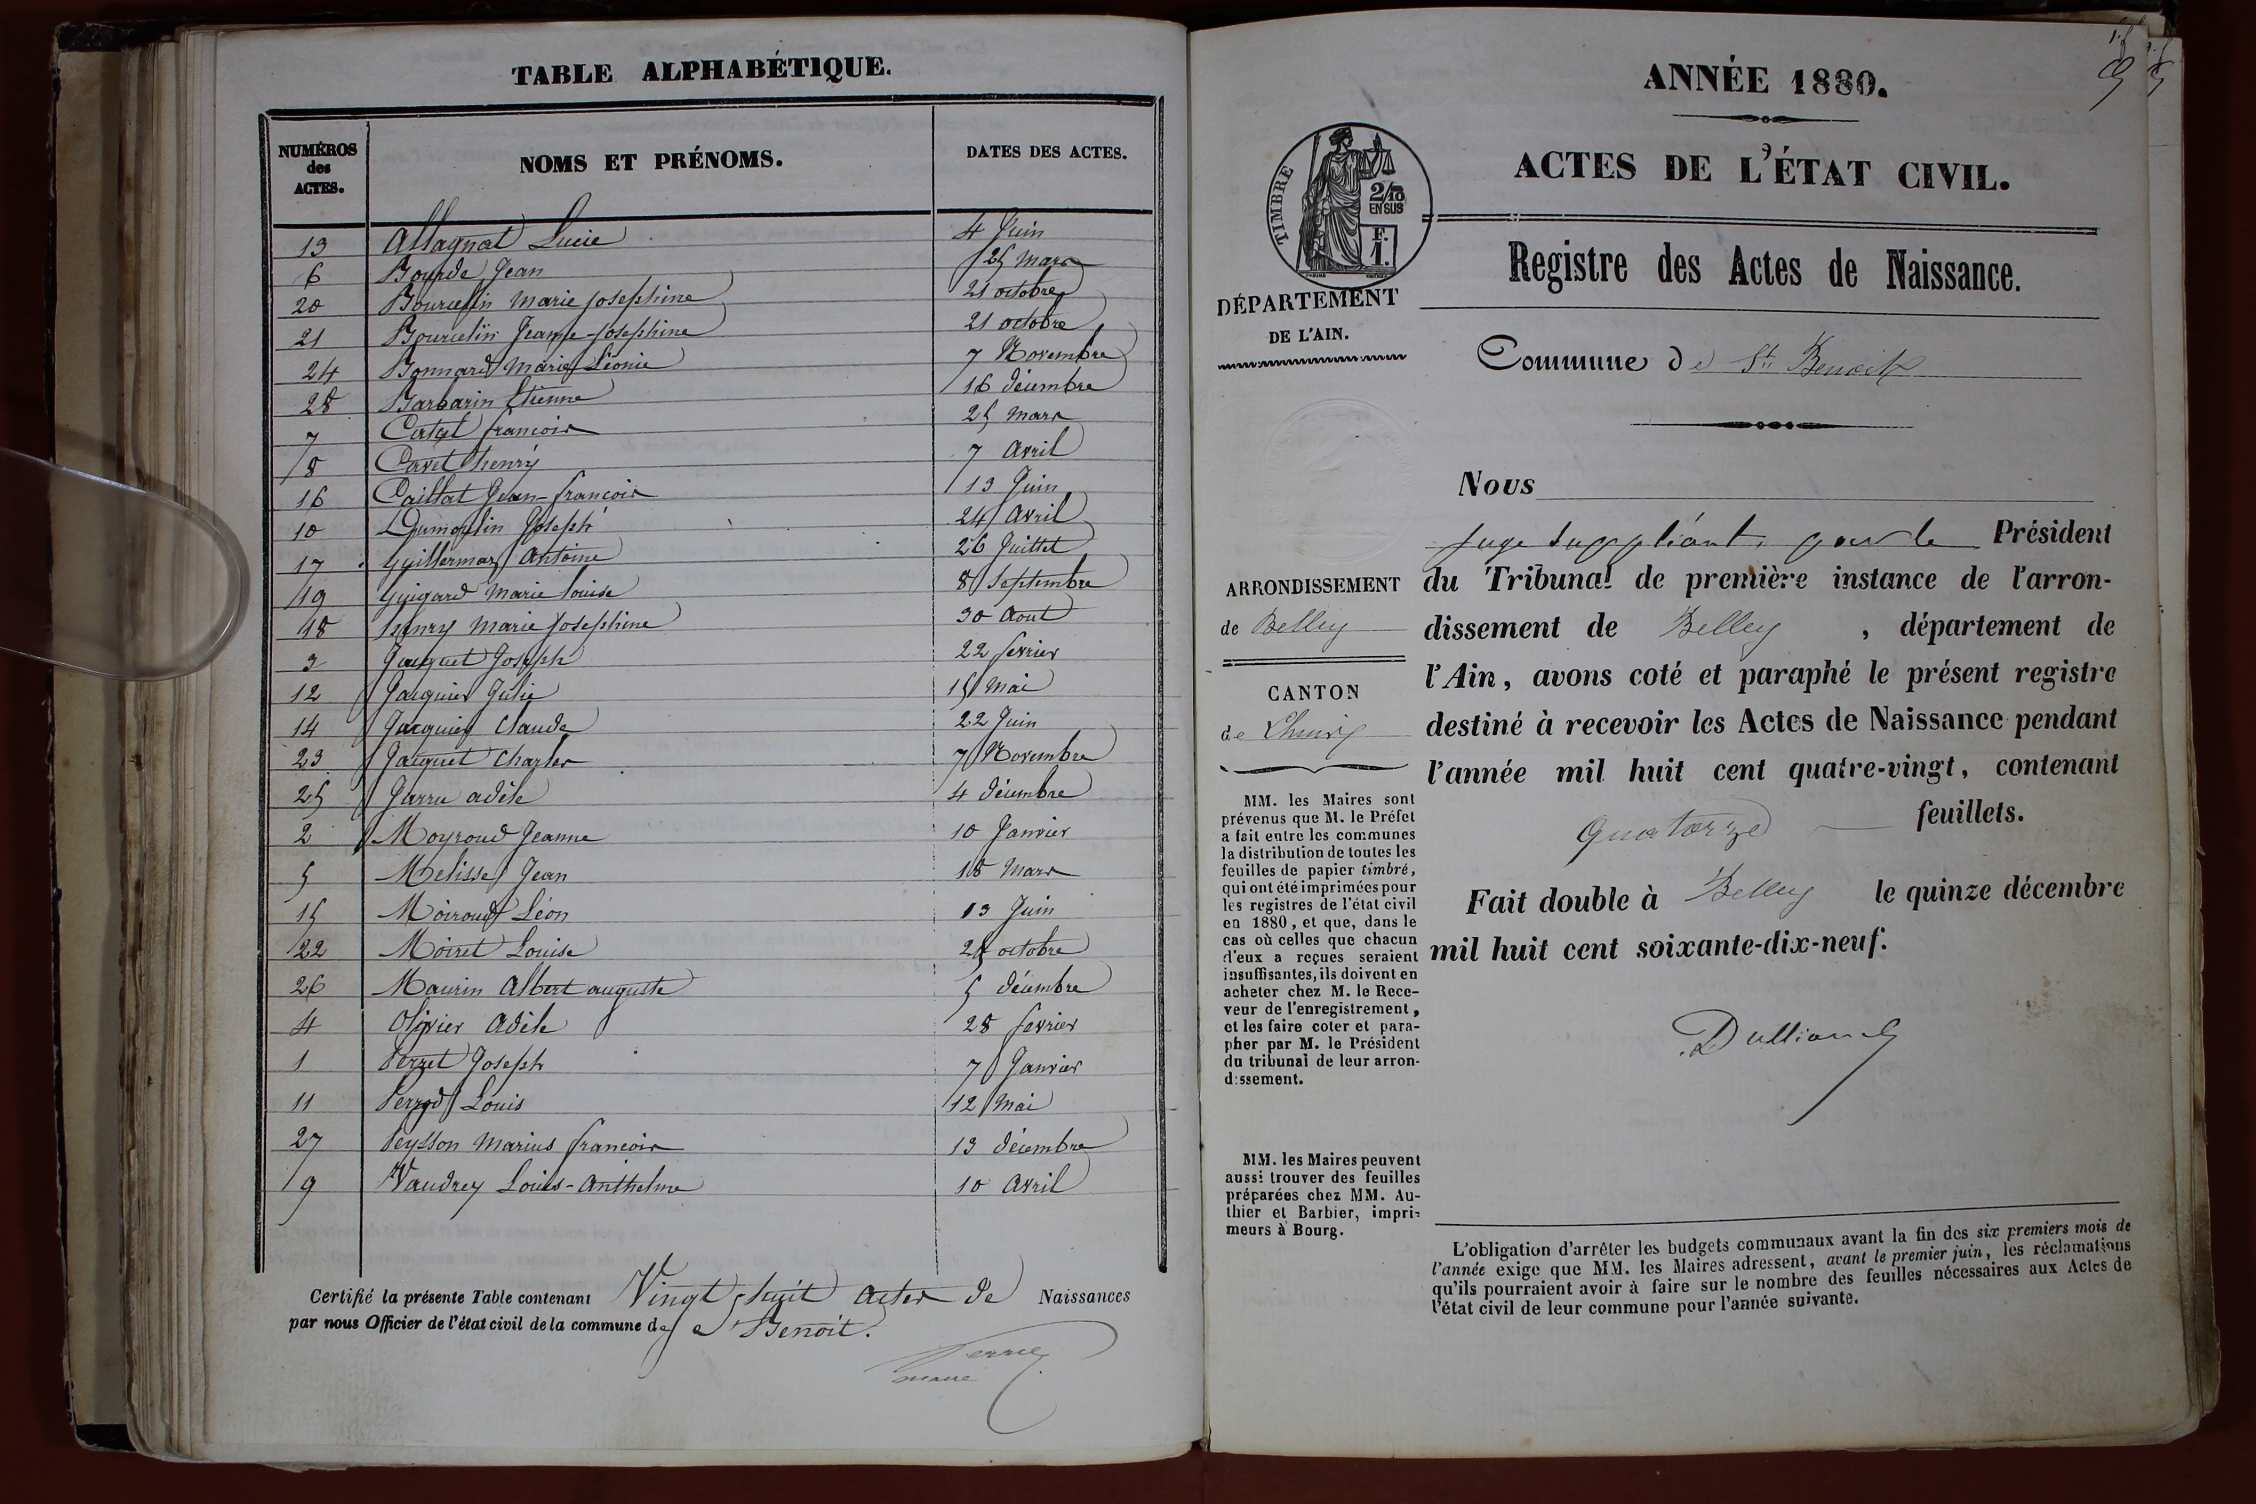 TABLE ALPHABÉTIQUE.
NUMÉROS des ACTES. NOMS ET PRÉNOMS. DATES DES ACTES.
13 Allagnat Lucie 4 Juin
6 Bourde Jean 25 Mars
20 Bourcelin Marie Josephine 21 octobre
21 Bourcelin Jeanne-Josephine 21 octobre
24 Bonnard Marie Léonie 7 Novembre
28 Barbarin Etienne 16 décembre
7 Catel francois 25 Mars
8 Cavet henry 7 Avril
16 Caillat Jean-francois 13 Juin
10 Dumoulin Joseph 24 Avril
17 Guillermaz Antoine 26 Juillet
19 Guigard Marie Louise 8 Septembre
18 henry Marie Josephine 30 Aout
3 Jacquet Joseph 22 fevrier
12 Jacquier Julie 15 Mai
14 Jacquier Claude 22 Juin
23 Jacquet Charles 7 Novembre
25 Jarru adèle 4 décembre
2 Moyroud Jeanne 10 Janvier
5 Melisse Jean 18 Mars
15 Moiroud Léon 13 Juin
22 Moiret Louise 24 octobre
26 Maurin Albert auguste 5 décembre
4 Olivier Adèle 28 fevrier
1 Perret Joseph 7 Janvier
11 Perrod Louis 12 Mai
27 Peysson Marius francois 13 décembre
9 Vaudrey Louis-Anthelme 10 Avril
Certifié la présente Table contenant Vingt huit actes de Naissances
par nous Officier de l'état civil de la commune de St Benoit.
maire
ANNÉE 1880.
ACTES DE L'ÉTAT CIVIL.
TIMBRE
2/10
EN SUS
F.
1.
Registre des Actes de Naissance.
DÉPARTEMENT
DE L'AIN.
Commune de St Benoit
Nous
juge suppléant, pour le Président
du Tribunal de première instance de l'arron-
dissement de Belley, département de
l'Ain, avons coté et paraphé le présent registre
destiné à recevoir les Actes de Naissance pendant
l'année mil huit cent quatre-vingt, contenant
quatorze feuillets.
Fait double à Belley le quinze décembre
mil huit cent soixante-dix-neuf.
ARRONDISSEMENT
de Belley
CANTON
de Lhuis
MM. les Maires sont
prévenus que M. le Préfet
a fait entre les communes
la distribution de toutes les
feuilles de papier timbré,
qui ont été imprimées pour
les registres de l'état civil
en 1880, et que, dans le
cas où celles que chacun
d'eux a reçues seraient
insuffisantes, ils doivent en
acheter chez M. le Rece-
veur de l'enregistrement,
et les faire coter et para-
pher par M. le Président
du tribunal de leur arron-
dissement.
MM. les Maires peuvent
aussi trouver des feuilles
préparées chez MM. Au-
thier et Barbier, impri-
meurs à Bourg.
L'obligation d'arrêter les budgets communaux avant la fin des six premiers mois de
l'année exige que MM. les Maires adressent, avant le premier juin, les réclamations
qu'ils pourraient avoir à faire sur le nombre des feuilles nécessaires aux Actes de
l'état civil de leur commune pour l'année suivante.